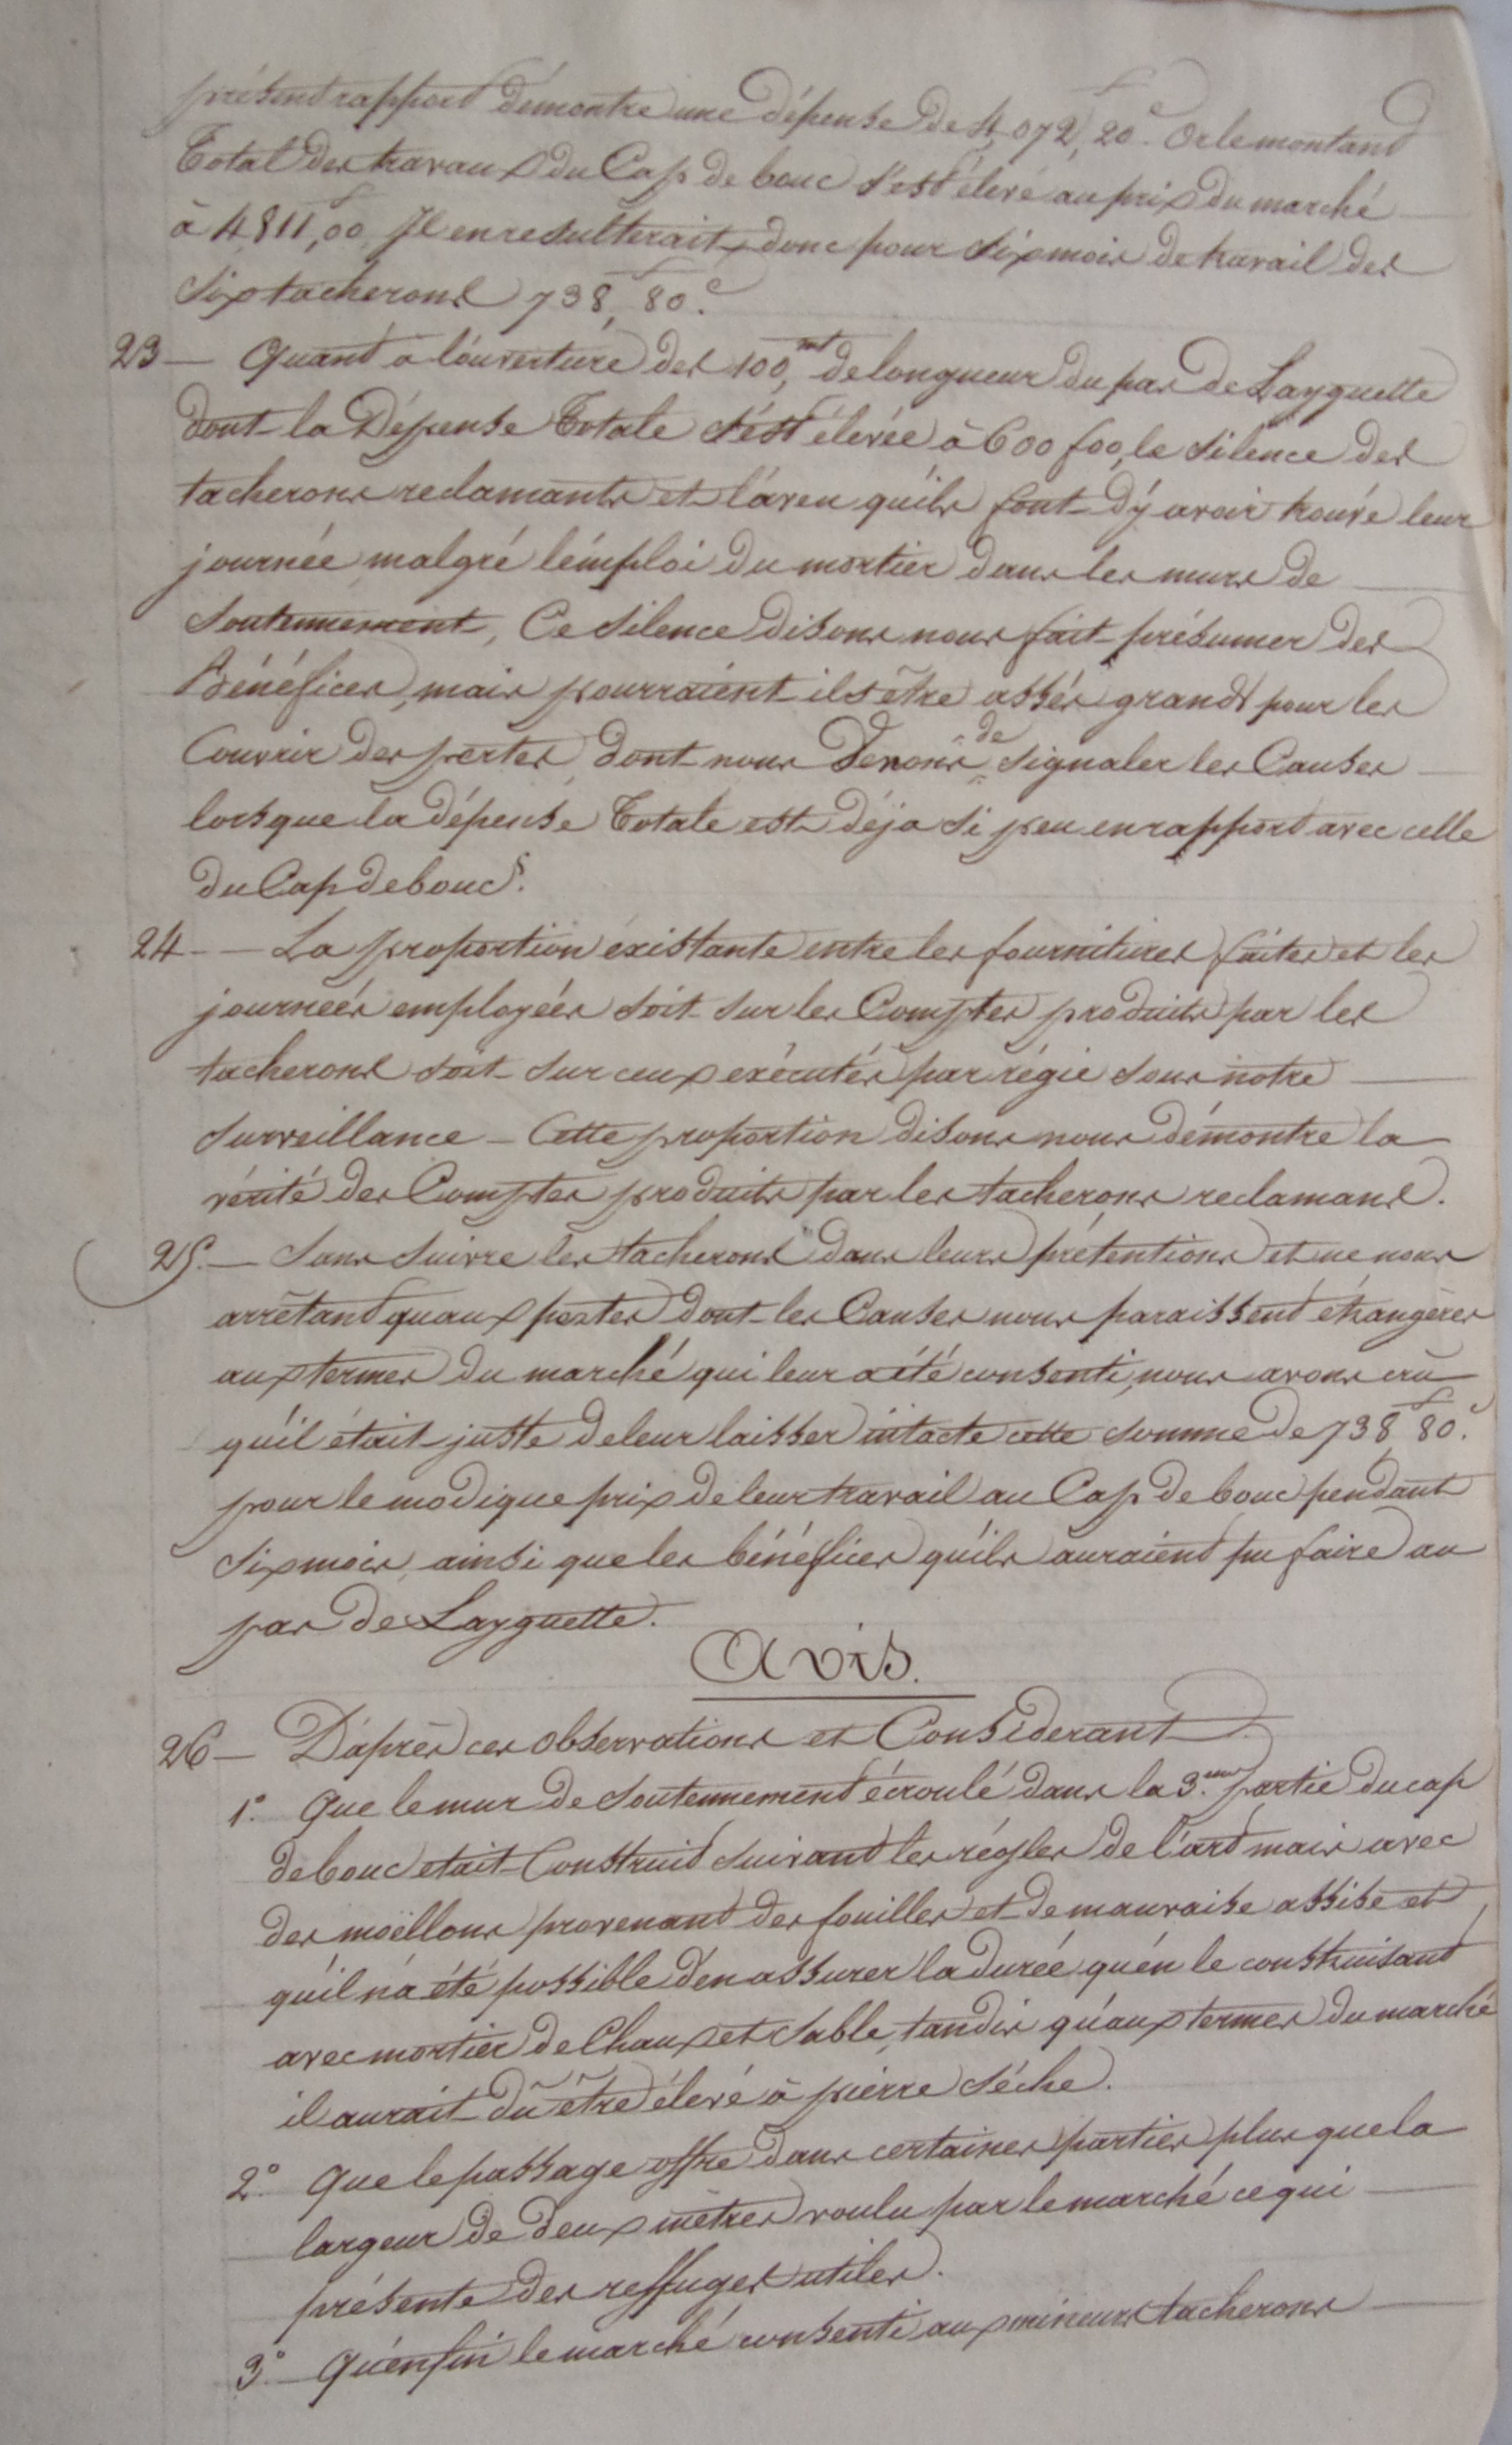 présent rapport démontre une dépense de 4,072,f 20c. Or le montant
Total des travaux du Cap de bouc s'est élevé au prix du marché
à 4,811,f 00. Il en resulterait donc pour six mois de travail des
six tacherons 738,f 80c.
23 — Quant à l'ouverture des 100,mt de longueur du pas de Layguette
dont la Dépense Totale s'est élevée à 600 f 00, le silence des
tacherons reclamants et l'aveu qu'ils font d'y avoir trouvé leur
journée malgré l'emploi du mortier dans les murs de
soutennement, Ce silence disons nous fait présumer des
Bénéfices, mais pourraient ils être assés grands pour les
Couvrir des pertes dont nous Venons de signaler les Causes
lorsque la dépense Totale est déja si peu en rapport avec celle
du Cap de bouc.
24 — La proportion existante entre les fournitures faites et les
journées employées soit sur les Comptes produits par les
tacherons soit sur ceux exécutés par régie sous notre
surveillance — Cette proportion disons nous démontre la
vérité des Comptes produits par les tacherons reclamans.
25. — Sans suivre les tacherons dans leurs prétentions et ne nous
arrêtant qu'aux pertes dont les Causes nous paraissent étrangères
aux termes du marché qui leur a été consenti, nous avons crû
qu'il était juste de leur laisser intacte cette somme de 738,f 80c.
pour le modique prix de leur travail au Cap de bouc pendant
six mois, ainsi que les bénéfices qu'ils auraient pu faire au
pas de Layguette.
Avis.
26 — D'après ces observations et Considerant
1° Que le mur de soutennement écroulé dans la 3.eme partie du cap
de bouc etait Construit suivant les régles de l'art mais avec
des moëllons provenant des fouilles et de mauvaise assise et
qu'il n'a été possible d'en assurer la durée qu'en le construisant
avec mortier de Chaux et sable, tandis qu'aux termes du marché
il aurait dû être élevé à pierre séche.
2° Que le passage offre dans certaines parties plus que la
largeur de deux mètres voulu par le marché ce qui
présente des reffuges utiles.
3° — Qu'enfin le marché consenti aux mineurs tacherons